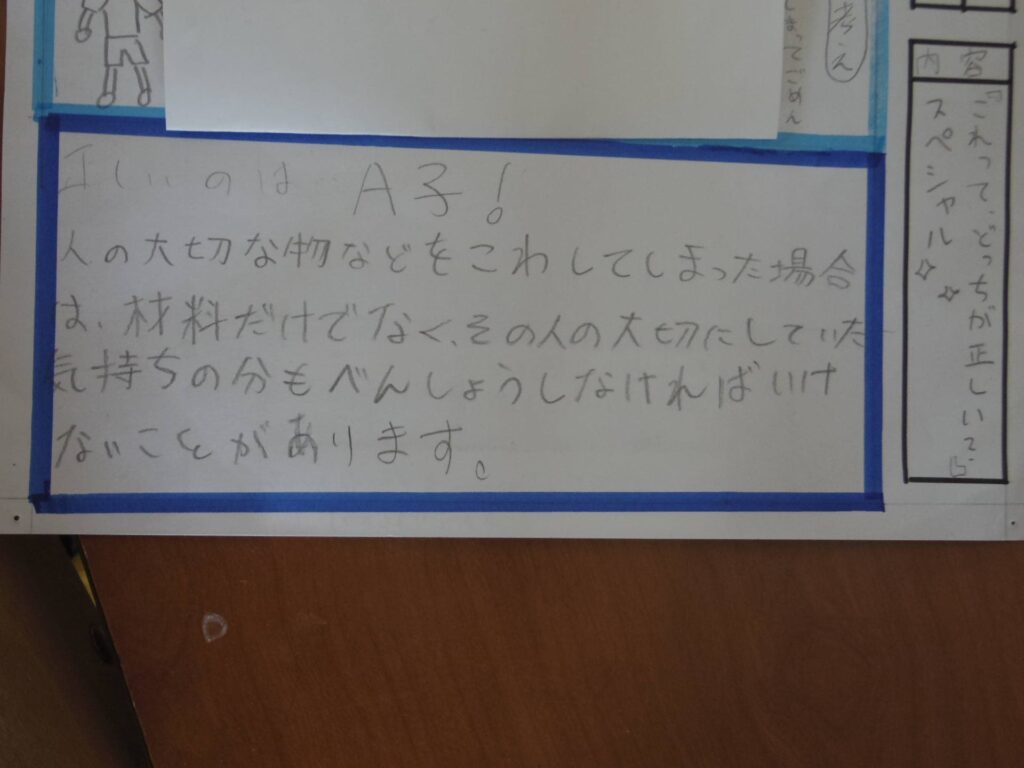 考え
まってごめん
内容
『これって、どっちが正しいで
スペシャル☆☆
正しいのは A子!
人の大切な物などをこわしてしまった場合
は、材料だけでなく、その人の大切にしていた
気持ちの分もべんしょうしなければいけ
ないことがあります。